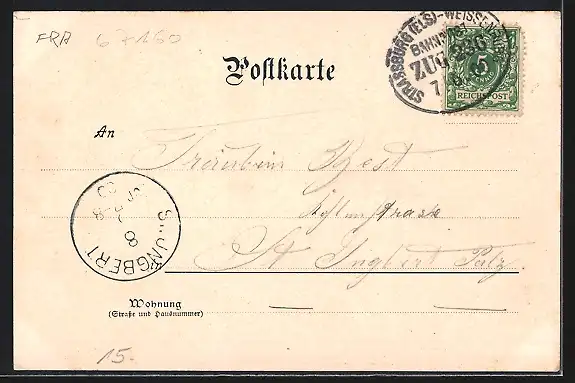 FRA 67160
STRASSBURG (ELS)-WEISSENBURG
BAHNPOST
ZUG
5
REICHSPOST
Postkarte
An
Fräulein
St. Ingbert Pfalz
ST. INGBERT
8
Wohnung
(Straße und Hausnummer)
15.-